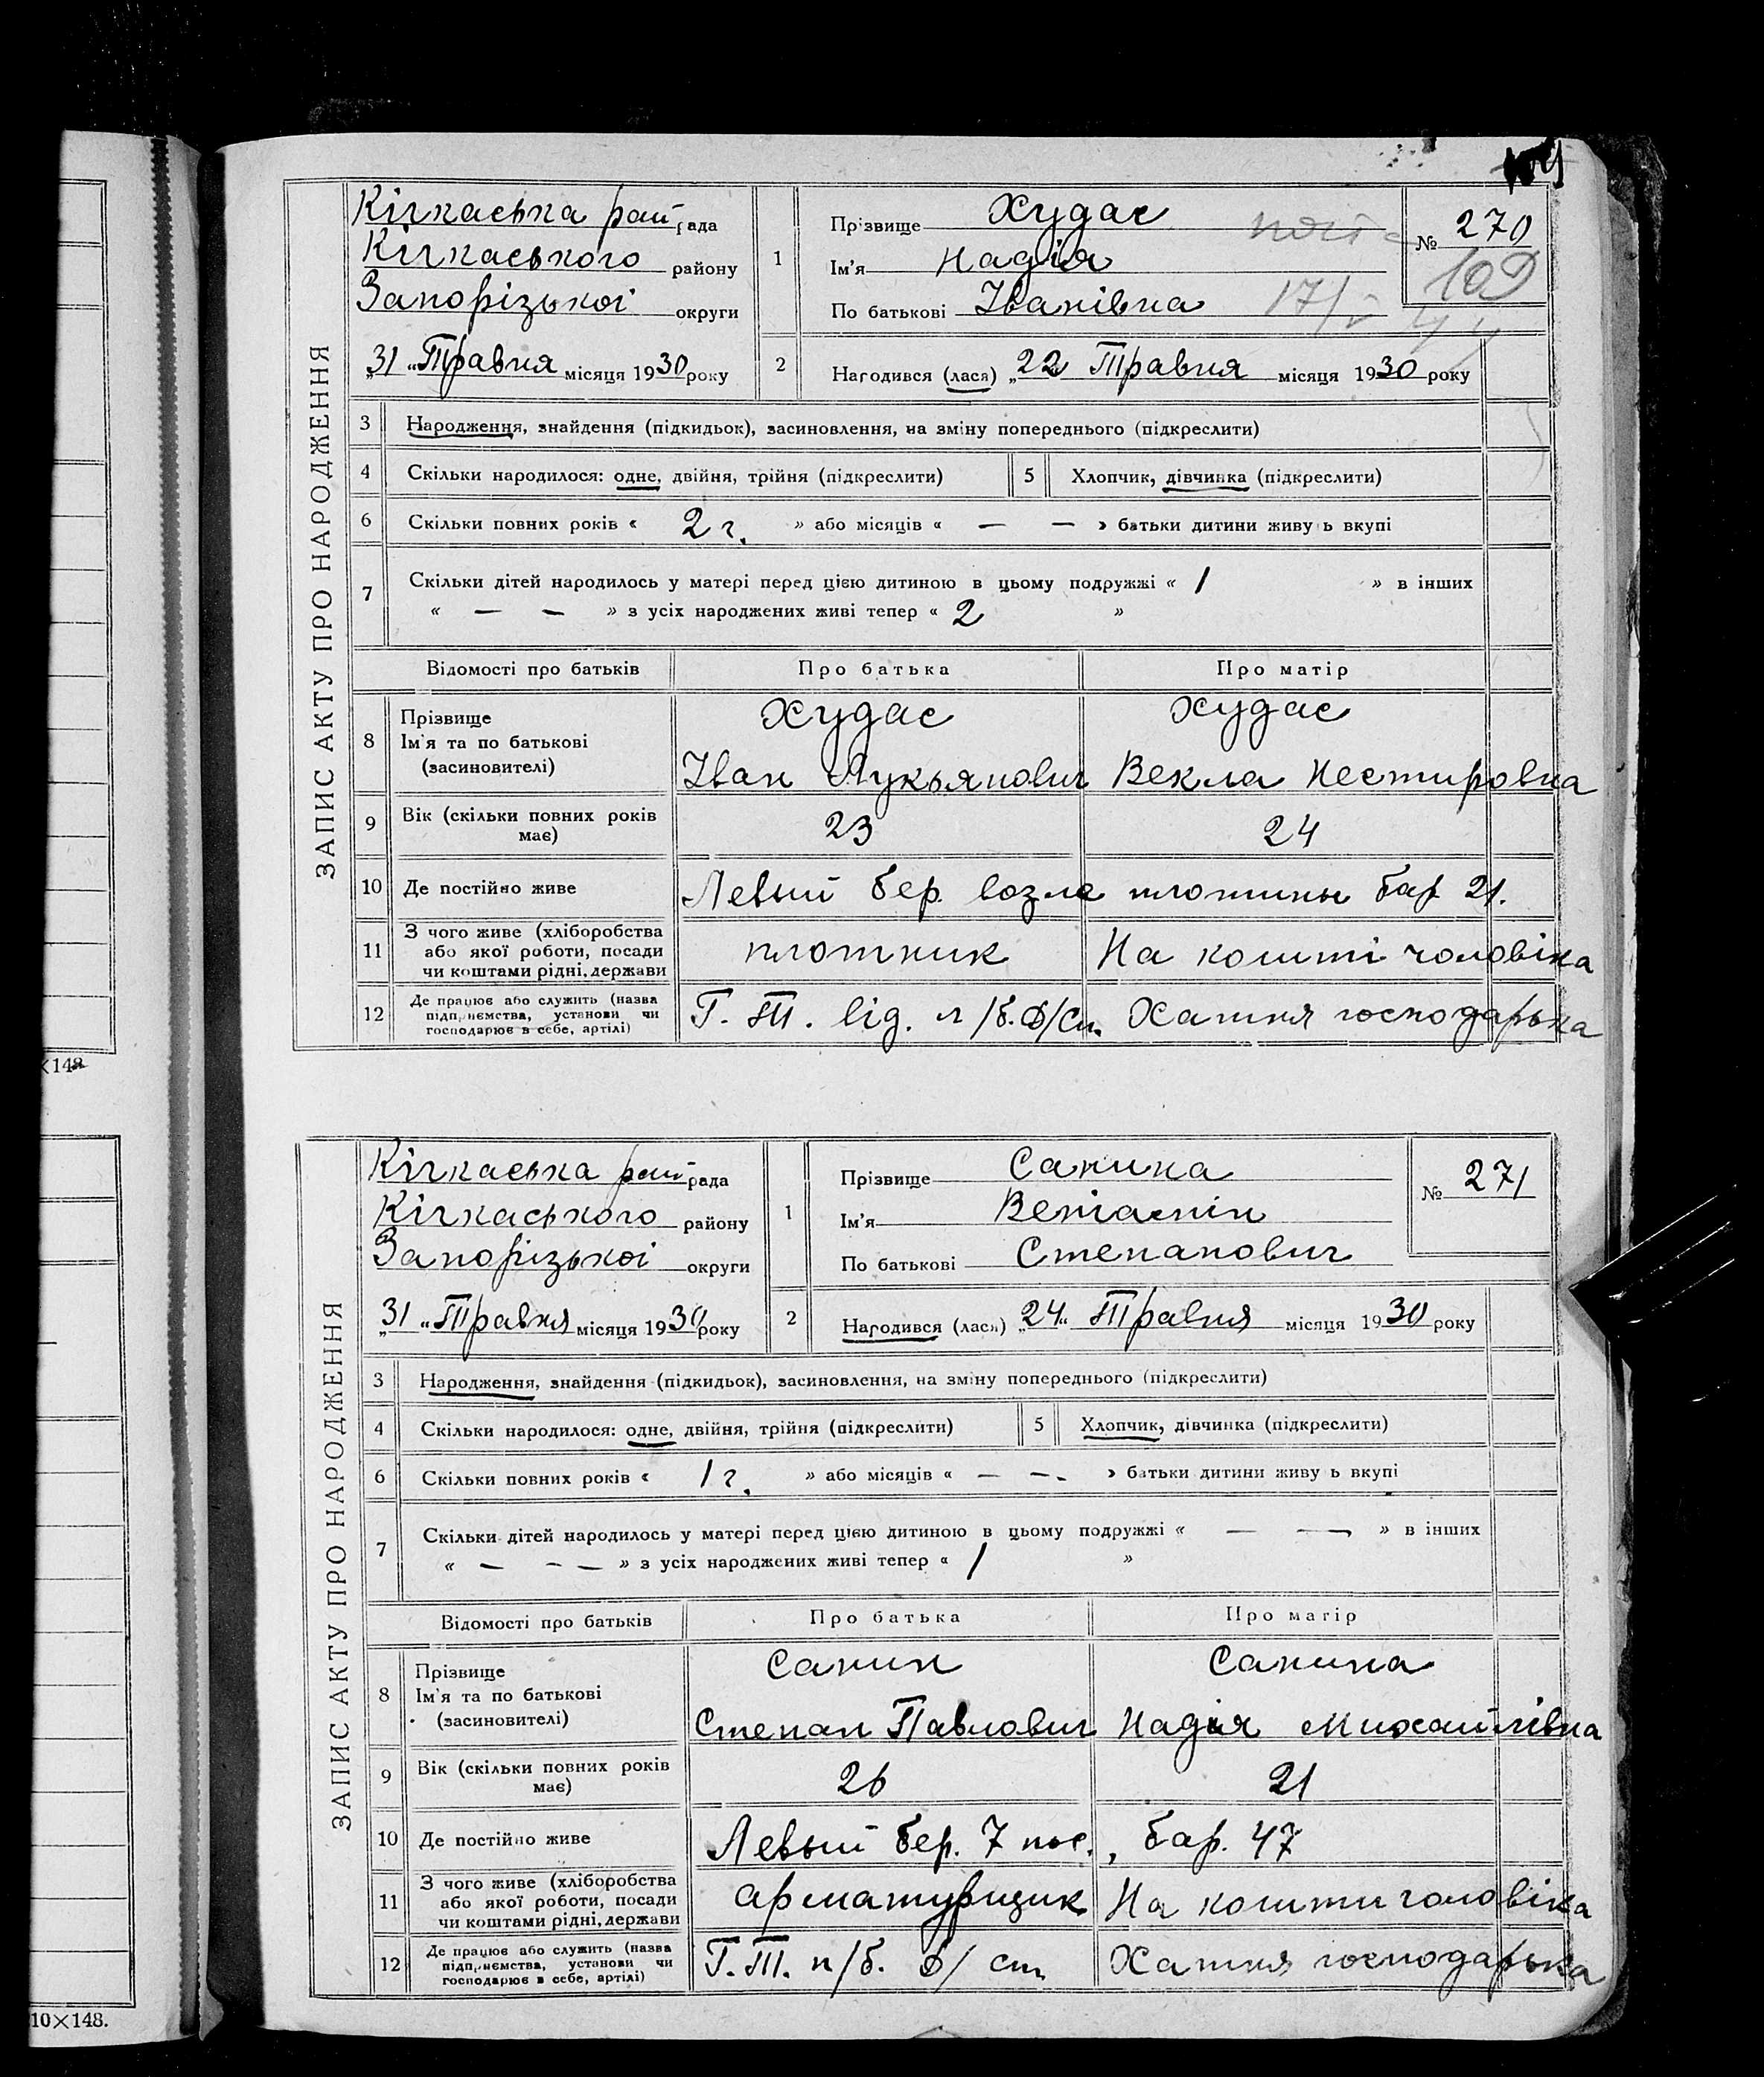 ЗАПИС АКТУ ПРО НАРОДЖЕННЯ
Кічкаська рай рада
Кічкаського району
Запорізької округи
„31“ Травня місяця 1930 року
1
Прізвище Худас
Ім'я Надія
По батькові Іванівна
№ 270
109
2 Народився (лася) „22 Травня місяця 1930 року
3 Народження, знайдення (підкидьок), засиновлення, на зміну попереднього (підкреслити)
4 Скільки народилося: одне, двійня, трійня (підкреслити) 5 Хлопчик, дівчинка (підкреслити)
6 Скільки повних років « 2 г. » або місяців « — — » батьки дитини живу ь вкупі
7 Скільки дітей народилось у матері перед цією дитиною в цьому подружжі « 1 » в інших
« — — » з усіх народжених живі тепер « 2 »
Відомості про батьків Про батька Про матір
8 Прізвище Худас Худас
Ім'я та по батькові
(засиновителі) Іван Лукьянович Векла Нестировна
9 Вік (скільки повних років має) 23 24
10 Де постійно живе Левый бер. возле плотины бар 21.
11 З чого живе (хліборобства
або якої роботи, посади плотник На кошті чоловіка
чи коштами рідні, держави
12 Де працює або служить (назва
підприємства, установи чи Г. Т. від. л/б. Д/Ст. Хатня господарька
господарює в себе, артілі)
×148
ЗАПИС АКТУ ПРО НАРОДЖЕННЯ
Кічкаська рай рада
Кічкаського району
Запорізької округи
„31“ Травня місяця 1930 року
1
Прізвище Санина
Ім'я Веніамін
По батькові Степанович
№ 271
2 Народився (лася) „24“ Травня місяця 1930 року
3 Народження, знайдення (підкидьок), засиновлення, на зміну попереднього (підкреслити)
4 Скільки народилося: одне, двійня, трійня (підкреслити) 5 Хлопчик, дівчинка (підкреслити)
6 Скільки повних років « 1 г. » або місяців « — —. » батьки дитини живу ь вкупі
7 Скільки дітей народилось у матері перед цією дитиною в цьому подружжі « — — » в інших
« — — — » з усіх народжених живі тепер « 1 »
Відомості про батьків Про батька Про матір
8 Прізвище Санин Санина
Ім'я та по батькові
(засиновителі) Степан Павлович Надія Михайлівна
9 Вік (скільки повних років має) 26 21
10 Де постійно живе Левый бер. 7 пос., бар. 47
11 З чого живе (хліборобства
або якої роботи, посади арматурщик На кошти чоловіка
чи коштами рідні, держави
12 Де працює або служить (назва
підприємства, установи чи Г. Т. п/б. Д/ ст. Хатня господарька
господарює в себе, артілі)
10×148.